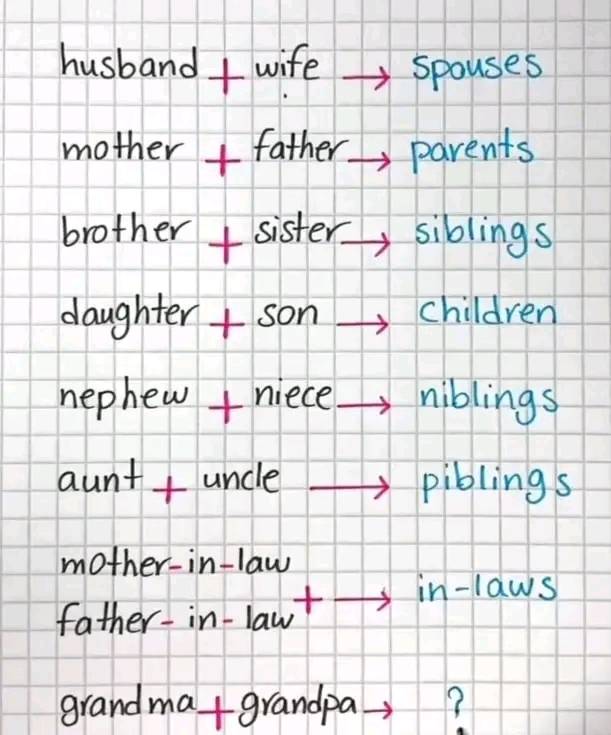 husband + wife → spouses
mother + father → parents
brother + sister → siblings
daughter + son → children
nephew + niece → niblings
aunt + uncle → piblings
mother-in-law
father-in-law + → in-laws
grandma + grandpa → ?